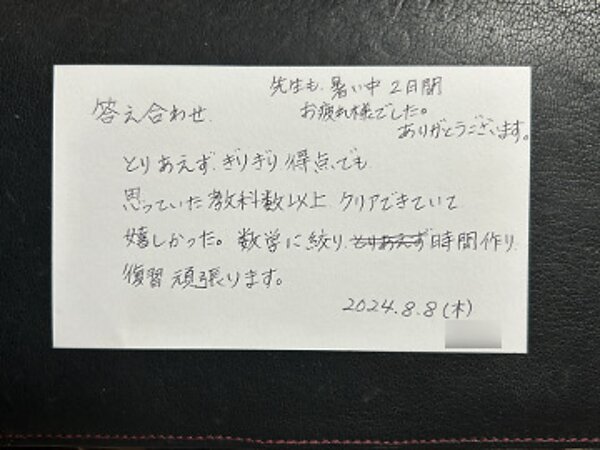 先生も、暑い中 2日間
お疲れ様でした。
ありがとうございます。
答え合わせ.
とりあえず、ぎりぎり得点でも
思っていた教科数以上、クリアできていて
嬉しかった。数学に絞り、とりあえず時間作り、
復習頑張ります。
2024.8.8(木)